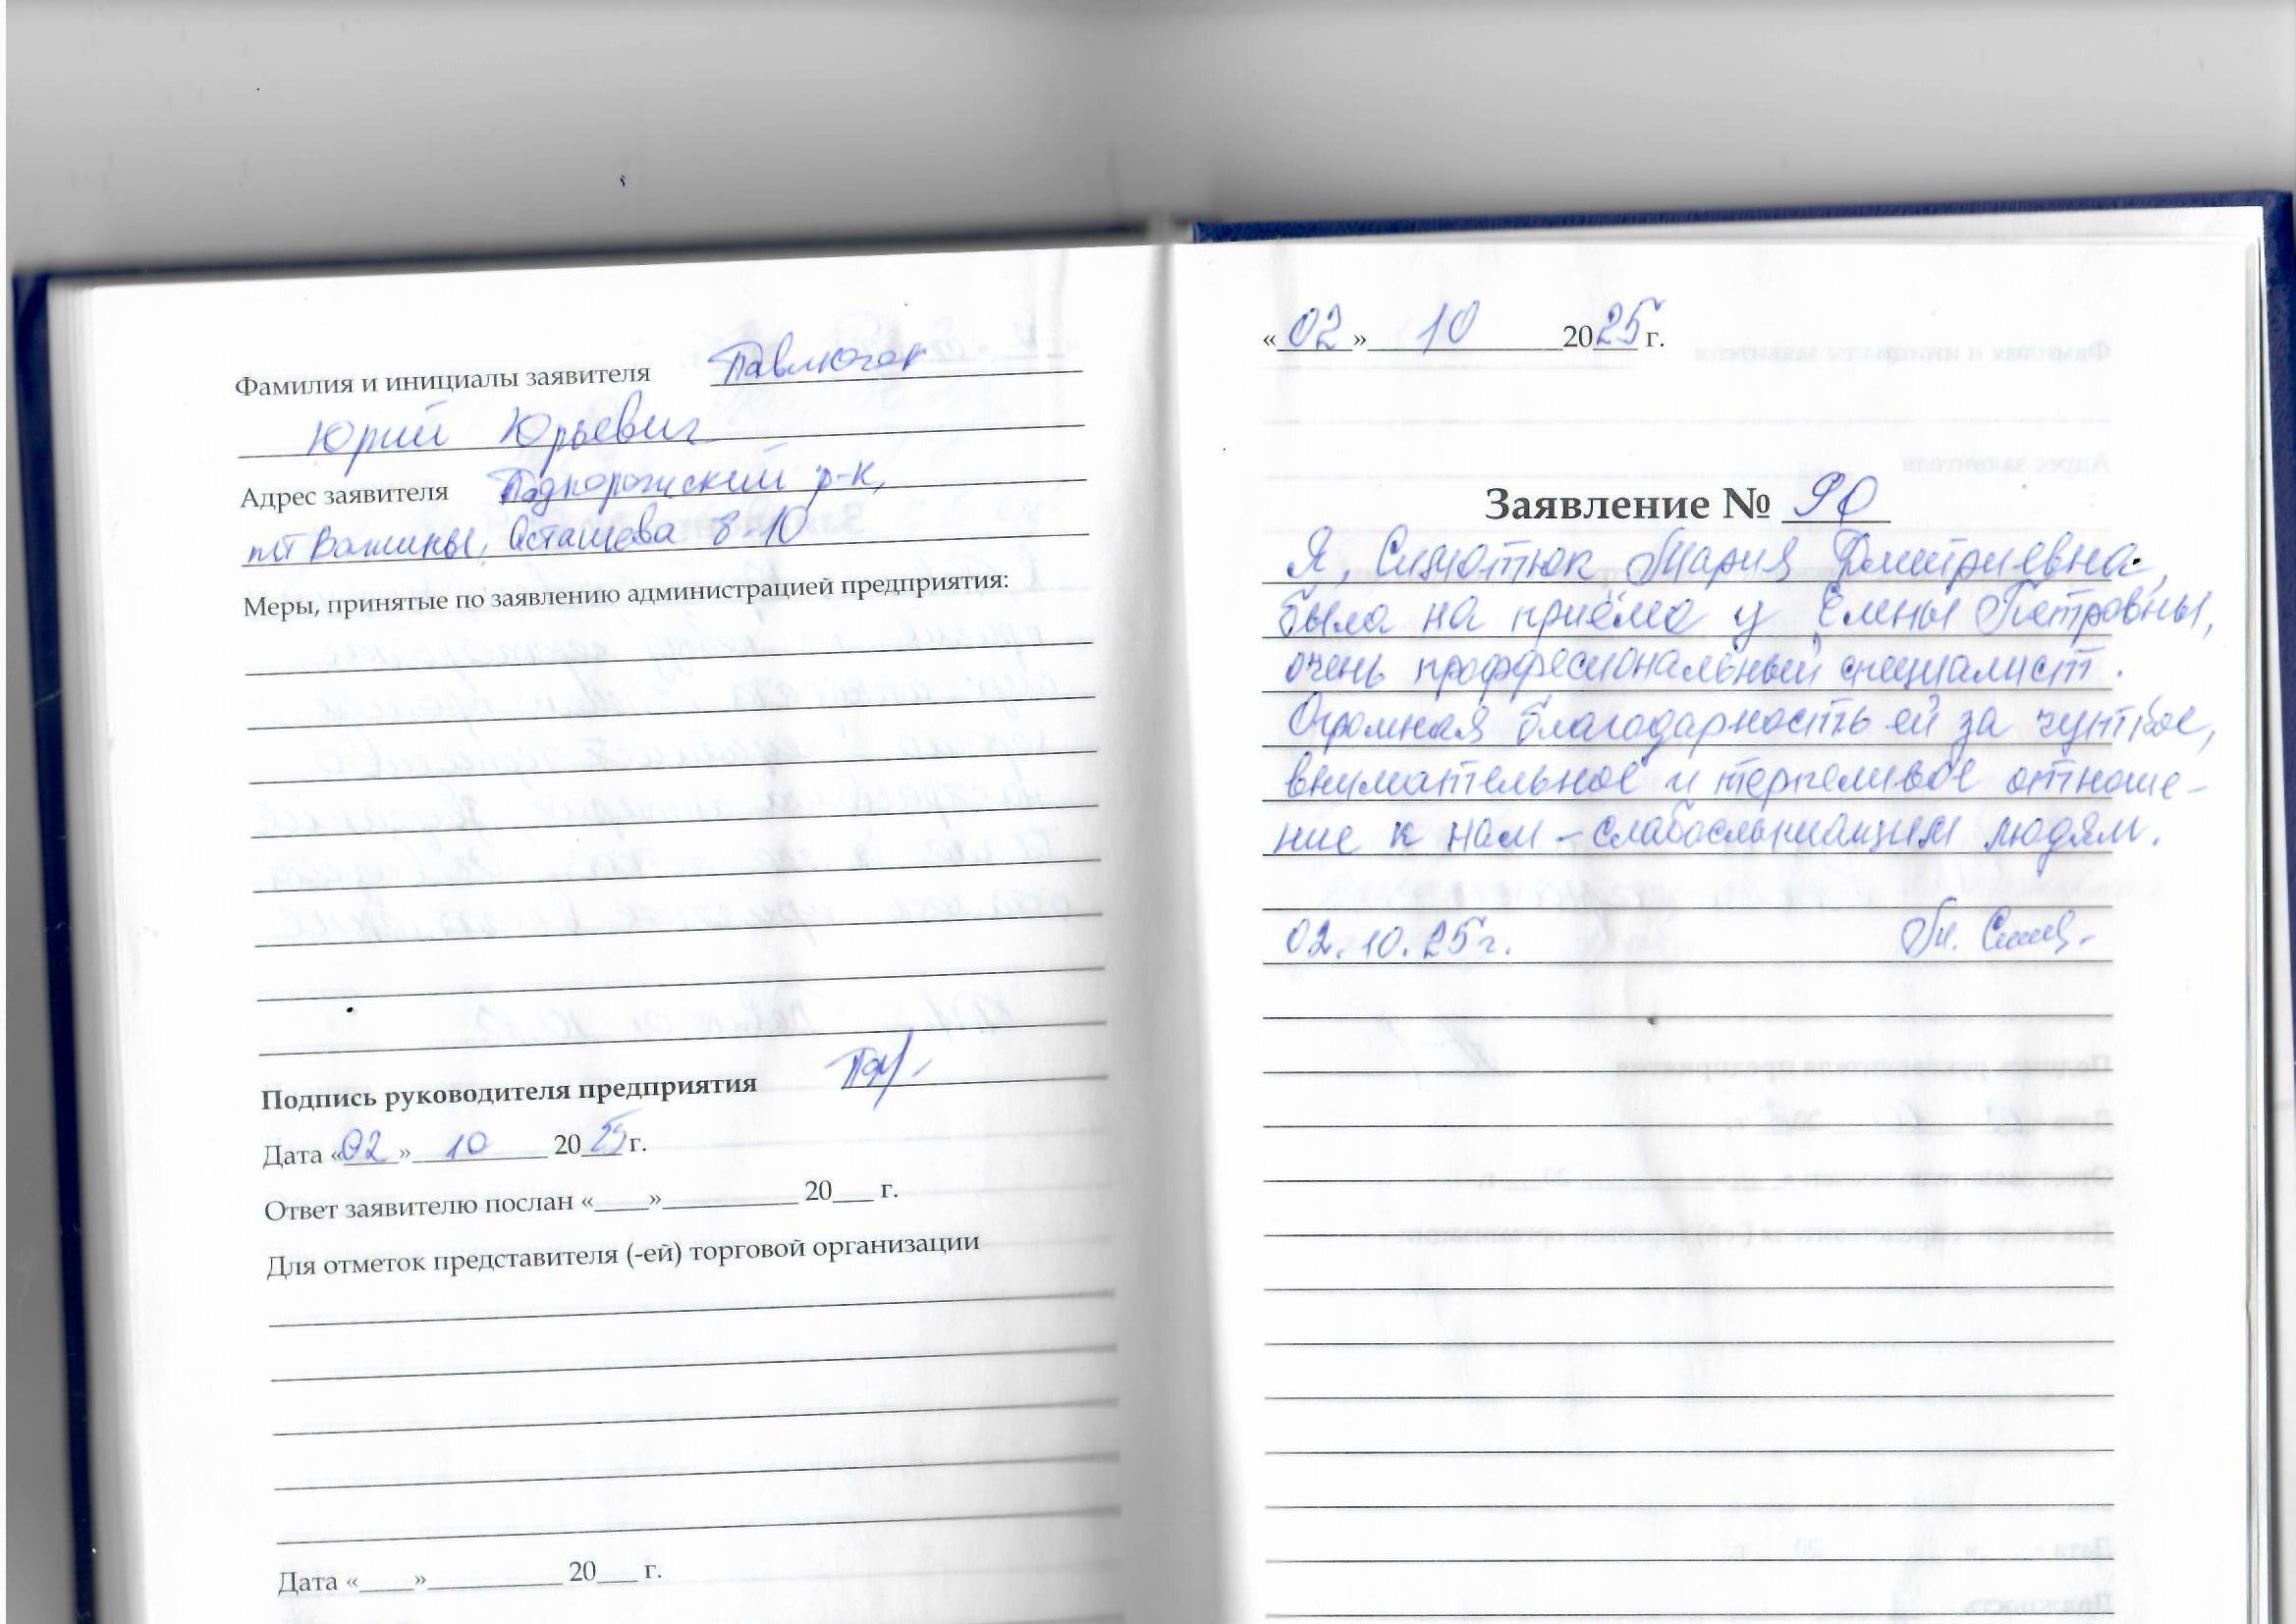 Фамилия и инициалы заявителя Павлючок
Юрий Юрьевич
Адрес заявителя Подпорожский р-н,
пгт Важины, Осташева 8-10
Меры, принятые по заявлению администрацией предприятия:
Подпись руководителя предприятия
Дата «02» 10 2025 г.
Ответ заявителю послан «____»__________ 20___ г.
Для отметок представителя (-ей) торговой организации
Дата «____»__________ 20___ г.
«02» 10 2025 г.
Заявление № 90
Я, Мария Дмитриевна,
была на приёме у Елены Петровны,
очень проффесиональный специалист.
Огромная благодарность ей за чуткое,
внимательное и терпеливое отноше-
ние к нам - слабослышащим людям.
02.10.25г.